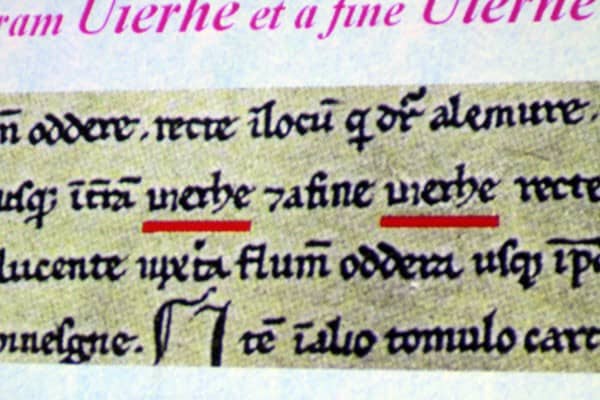 ram Uierhe et a fine Uierhe
m̄ oddere. recte īlocū q dr̄ alemure.
usq; īt̄rā uierhe ⁊ afine uierhe recte
lucente iuxta flum̄ oddera usq; īp
tē īalio tomulo cart